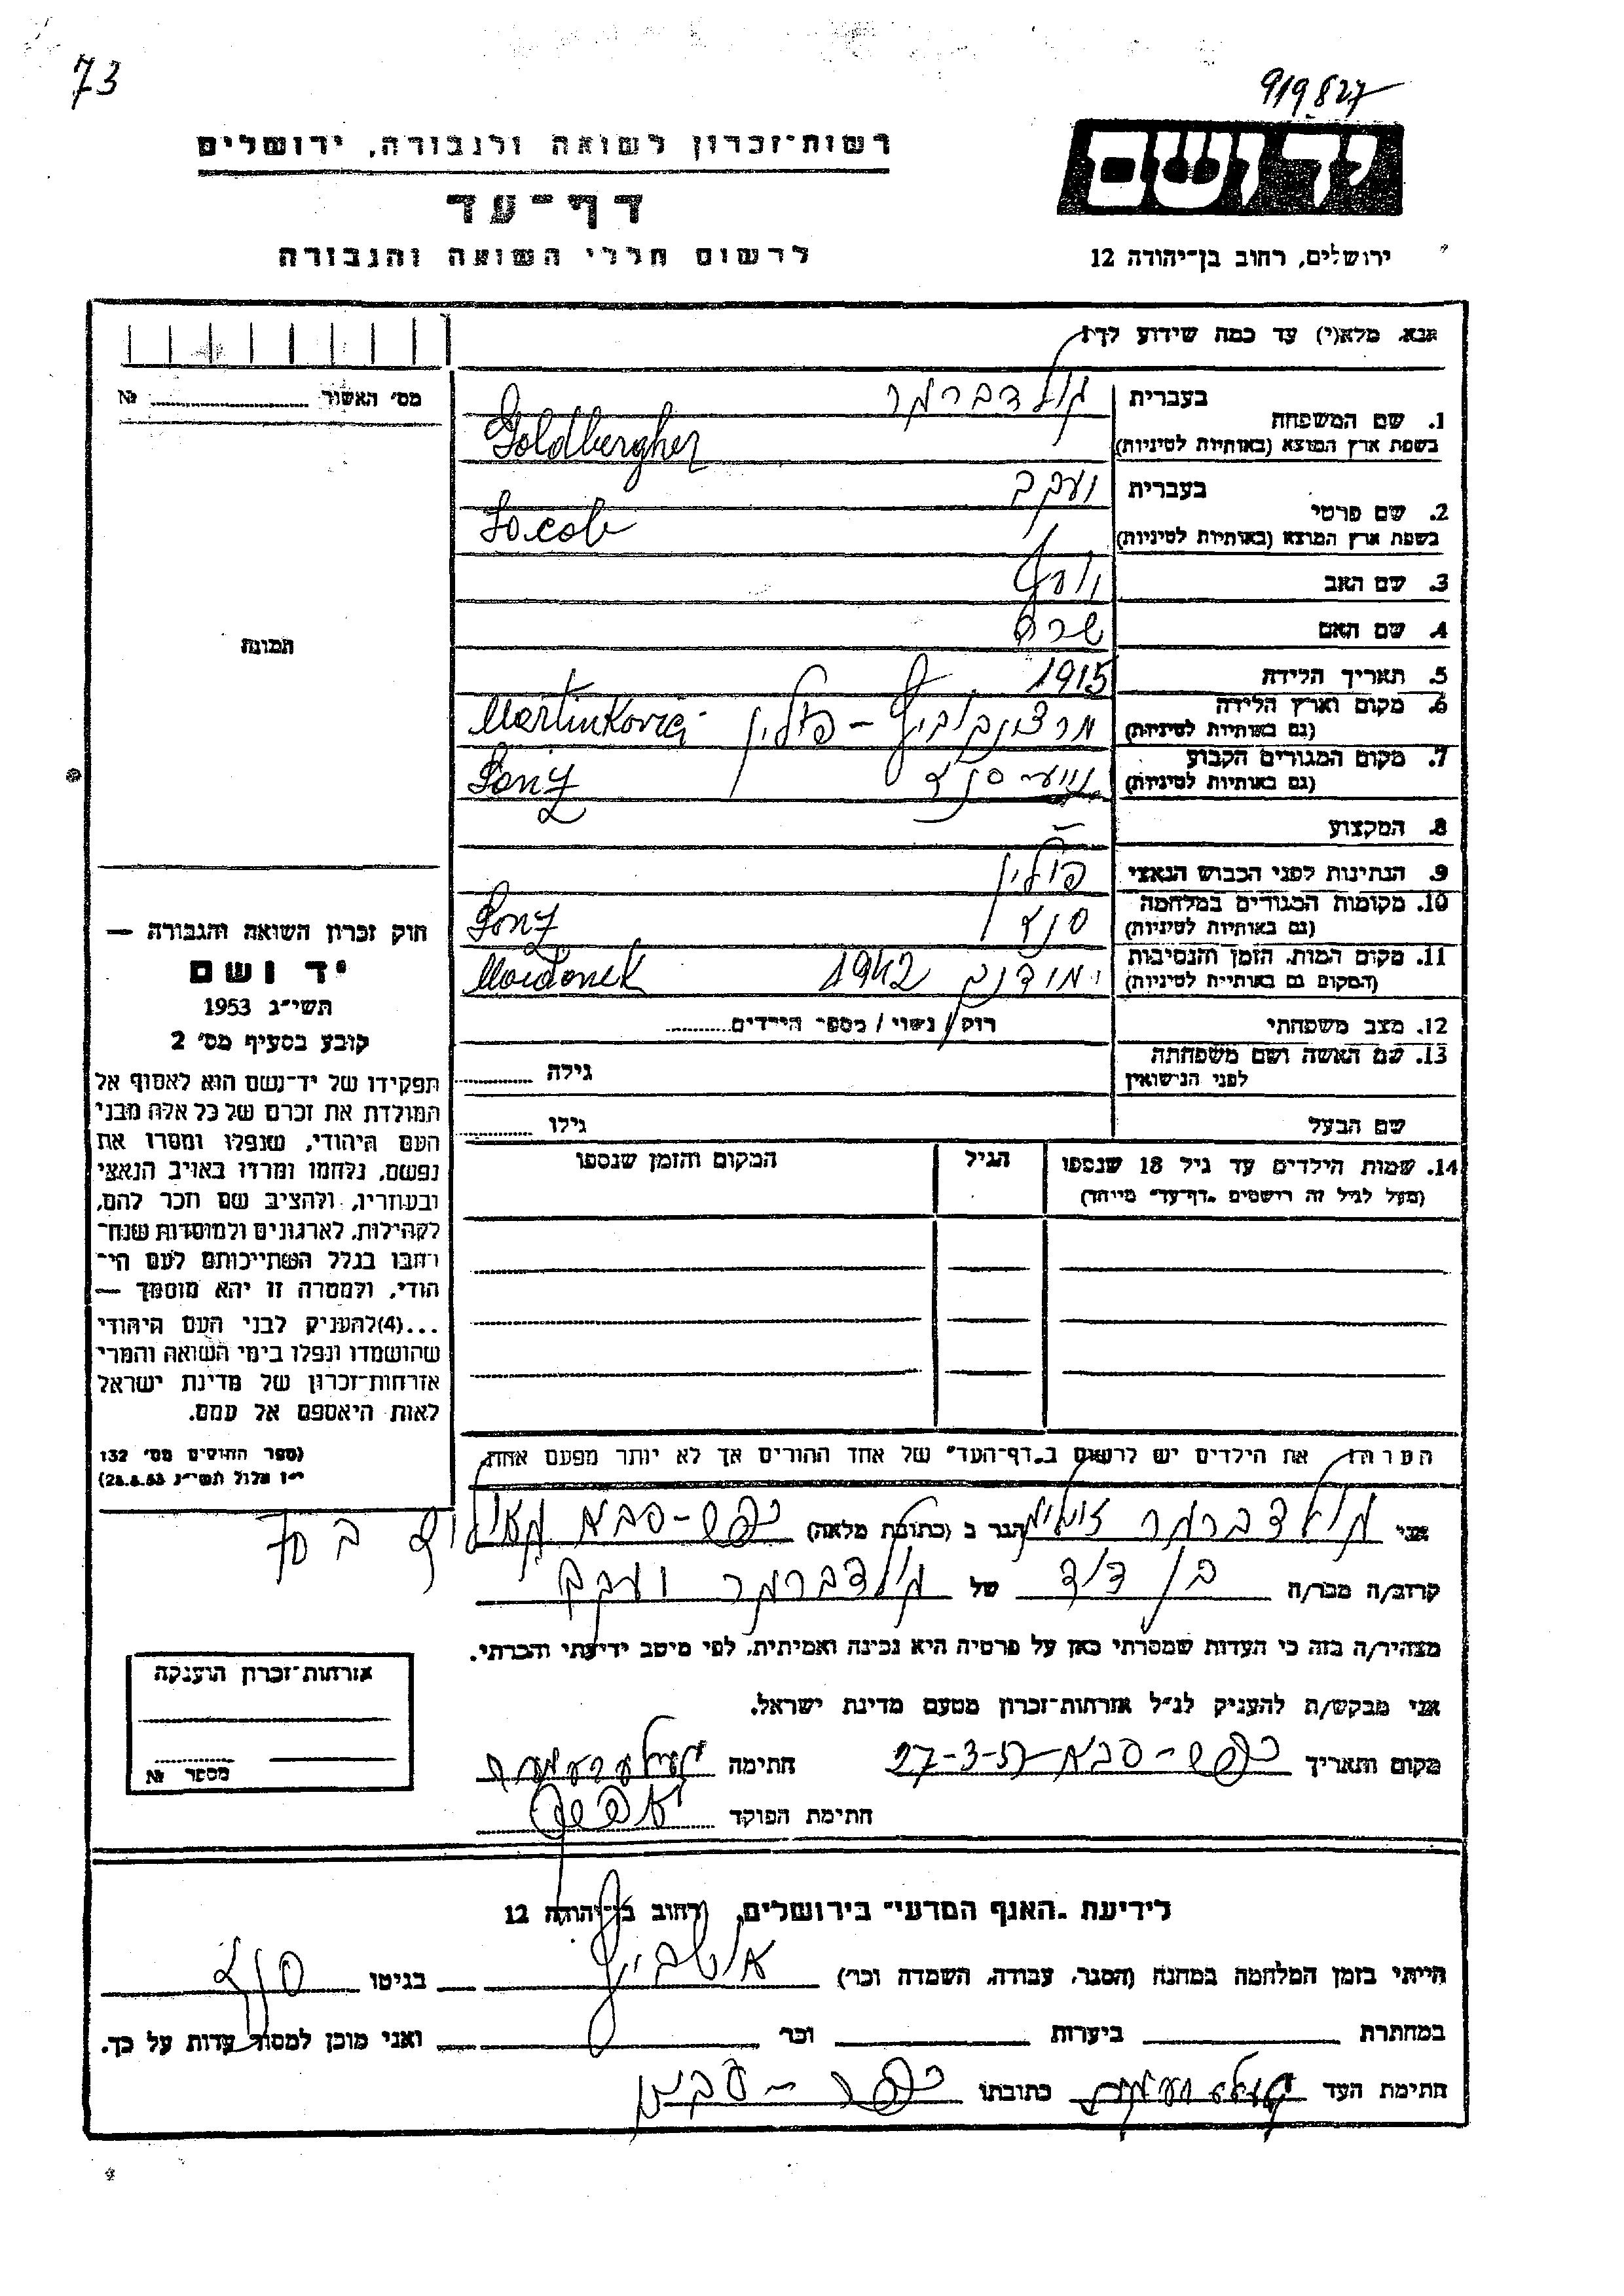 73
919827
יד ושם
רשות־זכרון לשואה ולגבורה, ירושלים
דף־עד
לרשום חללי השואה והגבורה
ירושלים, רחוב בן־יהודה 12
נא מלא(י) עד כמה שידוע לך:
מס׳ האשור № 
1. שם המשפחה בעברית גולדברגר
בשפת ארץ המוצא (באותיות לטיניות) Goldbergher
2. שם פרטי בעברית יעקב
בשפת ארץ המוצא (באותיות לטיניות) Jacob
3. שם האב יוסף
4. שם האם שרה
5. תאריך הלידה 1915
6. מקום וארץ הלידה (גם באותיות לטיניות) פולין Martinkovic
7. מקום המגורים הקבוע (גם באותיות לטיניות) סנץ Sonz
8. המקצוע –
9. הנתינות לפני הכבוש הנאצי פולין
10. מקומות המגורים במלחמה (גם באותיות לטיניות) סנץ Sonz
11. מקום המות, הזמן והנסיבות (המקום גם באותיות לטיניות) 1942 Maidonek
12. מצב משפחתי רוק / נשוי / מספר הילדים
13. שם האשה ושם משפחתה לפני הנישואין גילה
שם הבעל גילו
14. שמות הילדים עד גיל 18 שנספו הגיל המקום והזמן שנספו
(מעל לגיל זה רושמים „דף־עד״ מיוחד)
תמונה
חוק זכרון השואה והגבורה —
יד ושם
תשי״ג 1953
קובע בסעיף מס׳ 2
תפקידו של יד־ושם הוא לאסוף אל
המולדת את זכרם של כל אלה מבני
העם היהודי, שנפלו ומסרו את
נפשם, נלחמו ומרדו באויב הנאצי
ובעוזריו, ולהציב שם וזכר להם,
לקהילות, לארגונים ולמוסדות שנח־
רחבו בגלל השתייכותם לעם הי־
הודי, ולמטרה זו יהא מוסמך —
...(4)להעניק לבני העם היהודי
שהושמדו ונפלו בימי השואה והמרי
אזרחות־זכרון של מדינת ישראל
לאות היאספם אל עמם.
(ספר החוקים מס׳ 132
י״ז אלול תשי״ג 28.8.53)
הערה: את הילדים יש לרשום ב„דף־העד״ של אחד ההורים אך לא יותר מפעם אחת.
אני גולדברגר הגר ב (כתובת מלאה) כפר-סבא
קרוב/ה מבר/ה בן דוד של גולדברגר יעקב
מצהיר/ה בזה כי העדות שמסרתי כאן על פרטיה היא נכונה ואמיתית, לפי מיטב ידיעתי והכרתי.
אני מבקש/ת להעניק לנ״ל אזרחות־זכרון מטעם מדינת ישראל.
מקום ותאריך כפר-סבא 27-3-57 חתימה
חתימת הפוקד
אזרחות־זכרון הוענקה
מספר №
לידיעת „האגף המדעי״ בירושלים, רחוב בן־יהודה 12
הייתי בזמן המלחמה במחנה (הסגר, עבודה, השמדה וכו׳) אושביץ בגיטו סנץ
במחתרת ביערות וכו׳ ואני מוכן למסור עדות על כך.
חתימת העד כתובתו כפר-סבא